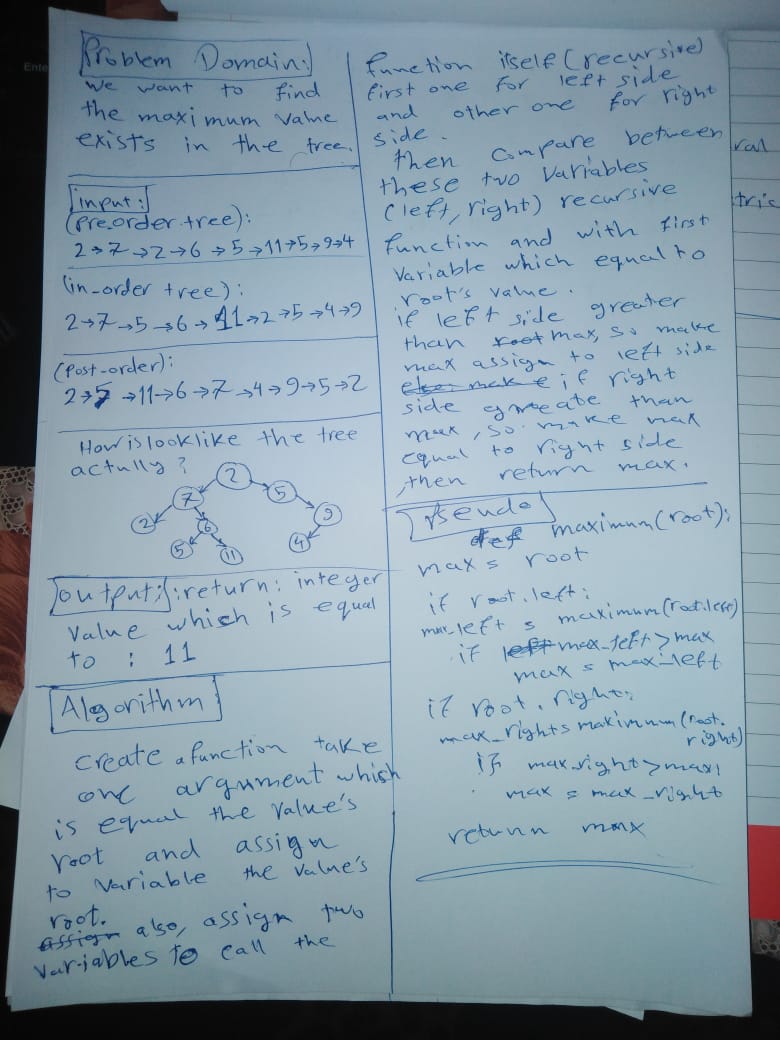 Problem Domain:
we want to find
the maximum value
exists in the tree.
input:
(pre_order tree):
2→7→2→6→5→11→5→9→4
(in_order tree):
2→7→5→6→11→2→5→4→9
(Post-order):
2→5→11→6→7→4→9→5→2
How is look like the tree
actully?
2
7 5
2 6 9
5 11 4
output: :return: integer
value which is equal
to : 11
Algorithm
create a function take
one argument which
is equal the value's
root and assign
to variable the value's
root.
assign also, assign two
variables to call the
function itself (recursive)
first one for left side
and other one for right
side.
then compare between
these two variables
(left, right) recursive
function and with first
variable which equal to
root's value.
if left side greater
than root max, so make
max assign to left side
else make if right
side greeate than
max, so make max
equal to right side
,then return max.
Pseudo
def maximum(root):
max = root
if root.left:
max-left = maximum(root.left)
if left max-left > max
max = max-left
if root.right:
max_right = maximum(root.
right)
if max-right > max:
max = max_right
return max
Ente
ral
tric